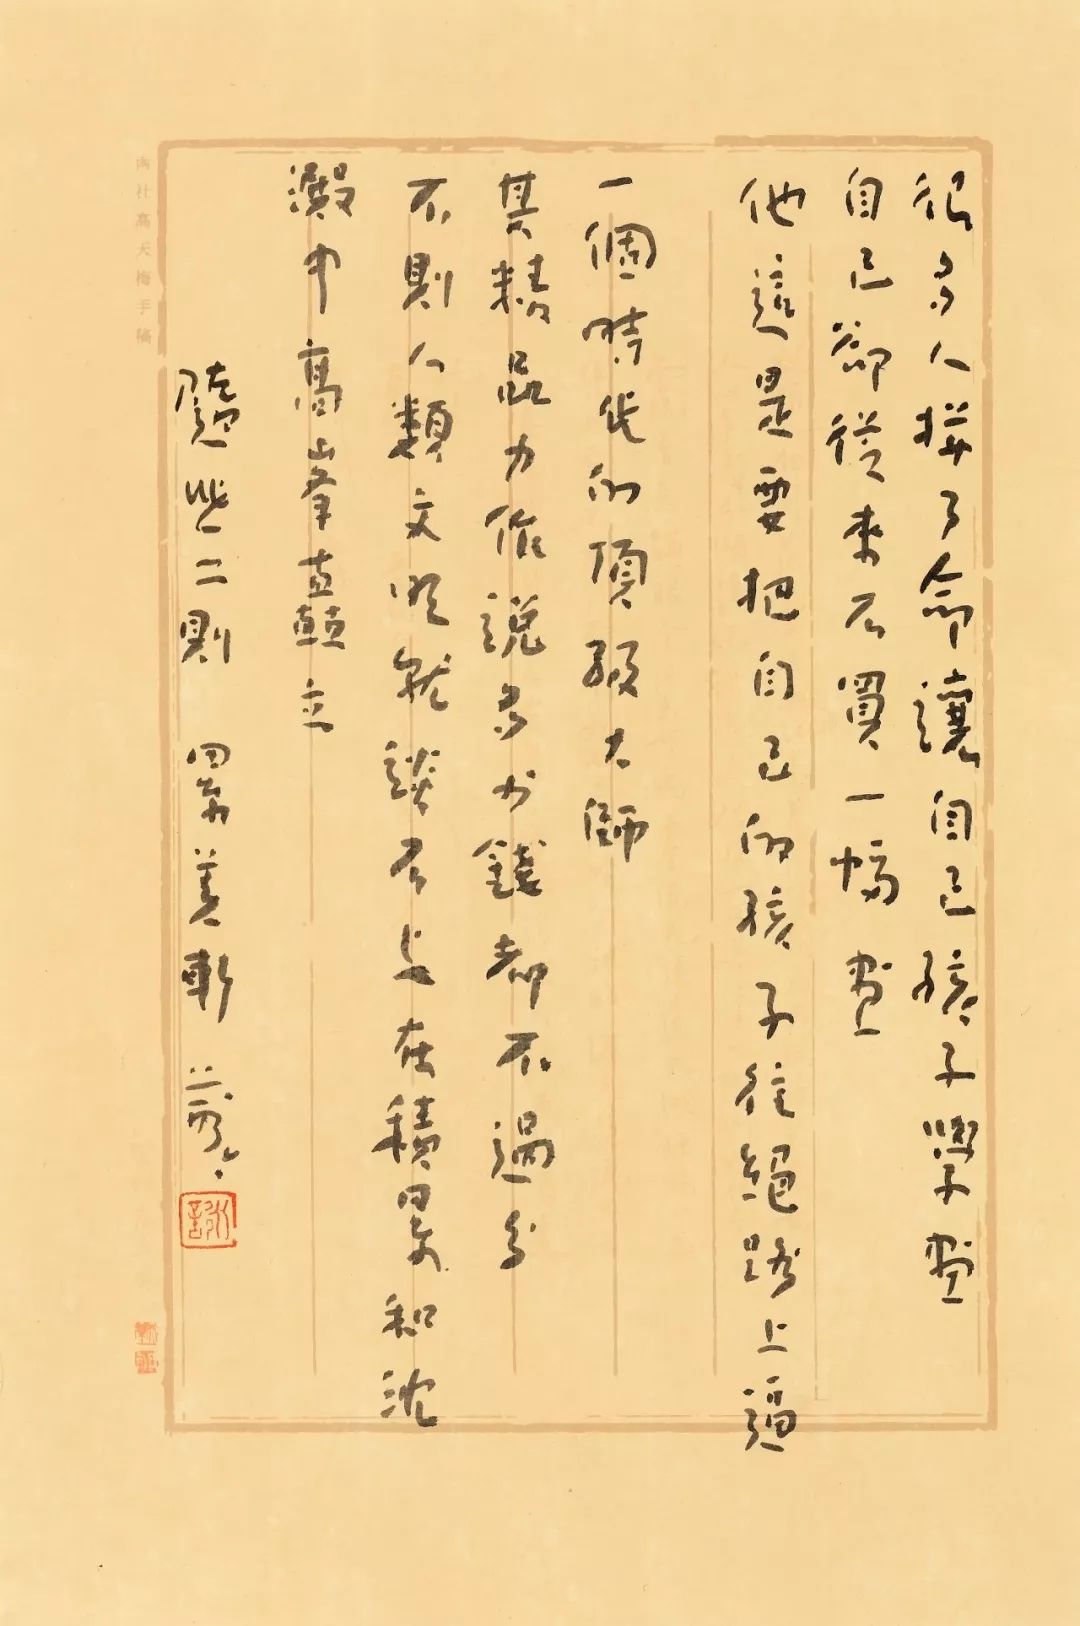 很多人拼了命讓自己孩子學畫
自己卻從來不買一幅畫
他這是要把自己的孩子往絕路上逼
一個時代的頂級大師
其精品力作說多少錢都不過分
不則人類文明就談不上在積累和沈
澱中高峯矗立
隨筆二則 累美軒
南社高天梅手稿